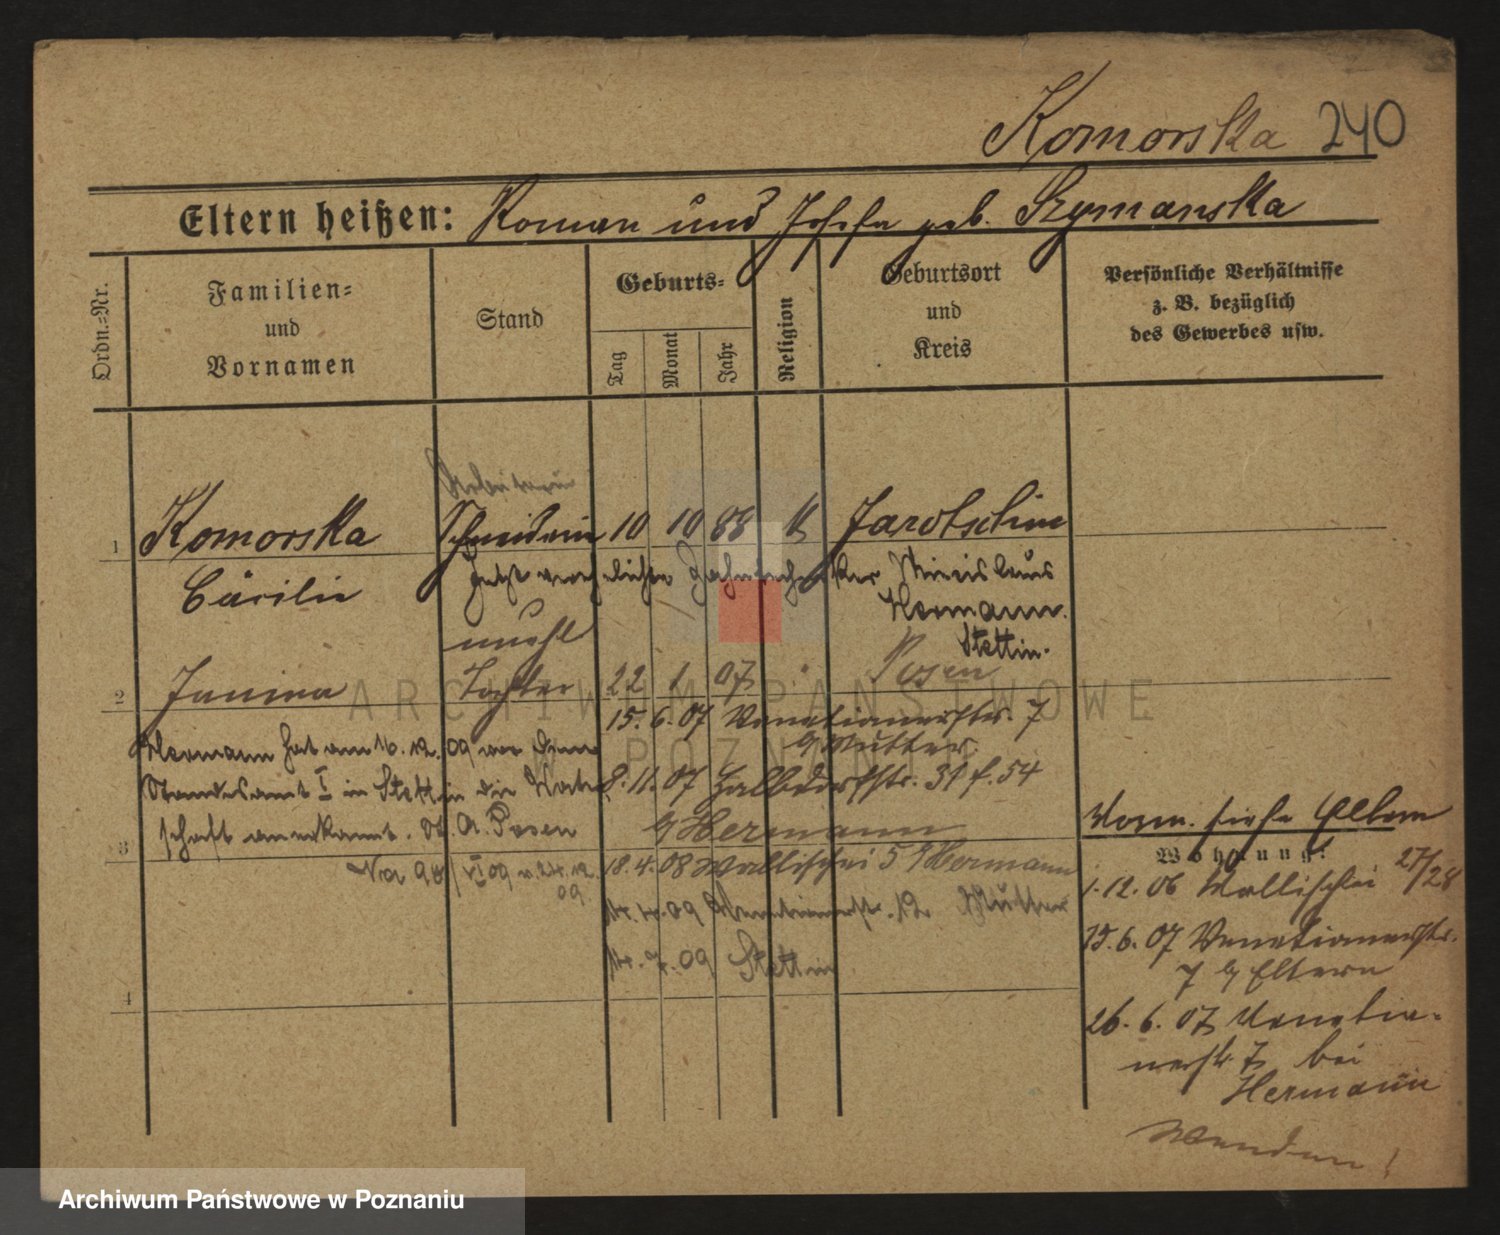 Komorska 240
Eltern heißen: Roman und Josefa geb. Szymanska
Ordn.=Nr.
Familien=
und
Vornamen
Stand
Geburts=
Tag
Monat
Jahr
Religion
Geburtsort
und
Kreis
Persönliche Verhältnisse
z. B. bezüglich
des Gewerbes usw.
Arbeiterin
1 Komorska Schneiderin 10 10 88 k Jarotschin
Cäcilie jetzt verehelichte Miecislaus
Hermann.
Stettin.
unehl
2 Janina Tochter 22 1 07 " Posen
15. 6. 07 Venetianerstr. 7
b/ Mutter.
Hermann hat am 16. 12. 09 vor dem
Standesamt I in Stettin die Vater
schaft anerkannt. St. A. Posen
8. 11. 07 Halbdorfstr. 31 f. 54
b/ Hermann
3
18. 4. 08 Wallischei 5 b/ Hermann
VI 09 v. 24. 12.
09
14. 4. 09 Venetianerstr. 12 Mutter
14. 7. 09 Stettin
4
Vorm. siehe Eltern
Wohnung:
1. 12. 06 Wallischei 27/28
15. 6. 07 Venetianerstr.
7 b/ Eltern
26. 6. 07 Venetia-
nerstr. 7 bei
Hermann
Wenden!
ARCHIWUM PAŃSTWOWE
W POZNANIU
Archiwum Państwowe w Poznaniu